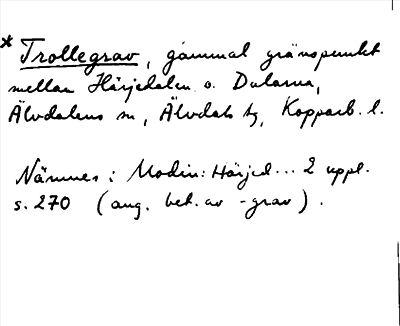 * Trollegrav, gammal gränspunkt
mellan Härjedalen o. Dalarna,
Älvdalens sn, Älvdals tg, Kopparb. l.
Nämnes i Modin: Härjed... 2 uppl.
s. 270 (ang. bet. av -grav).